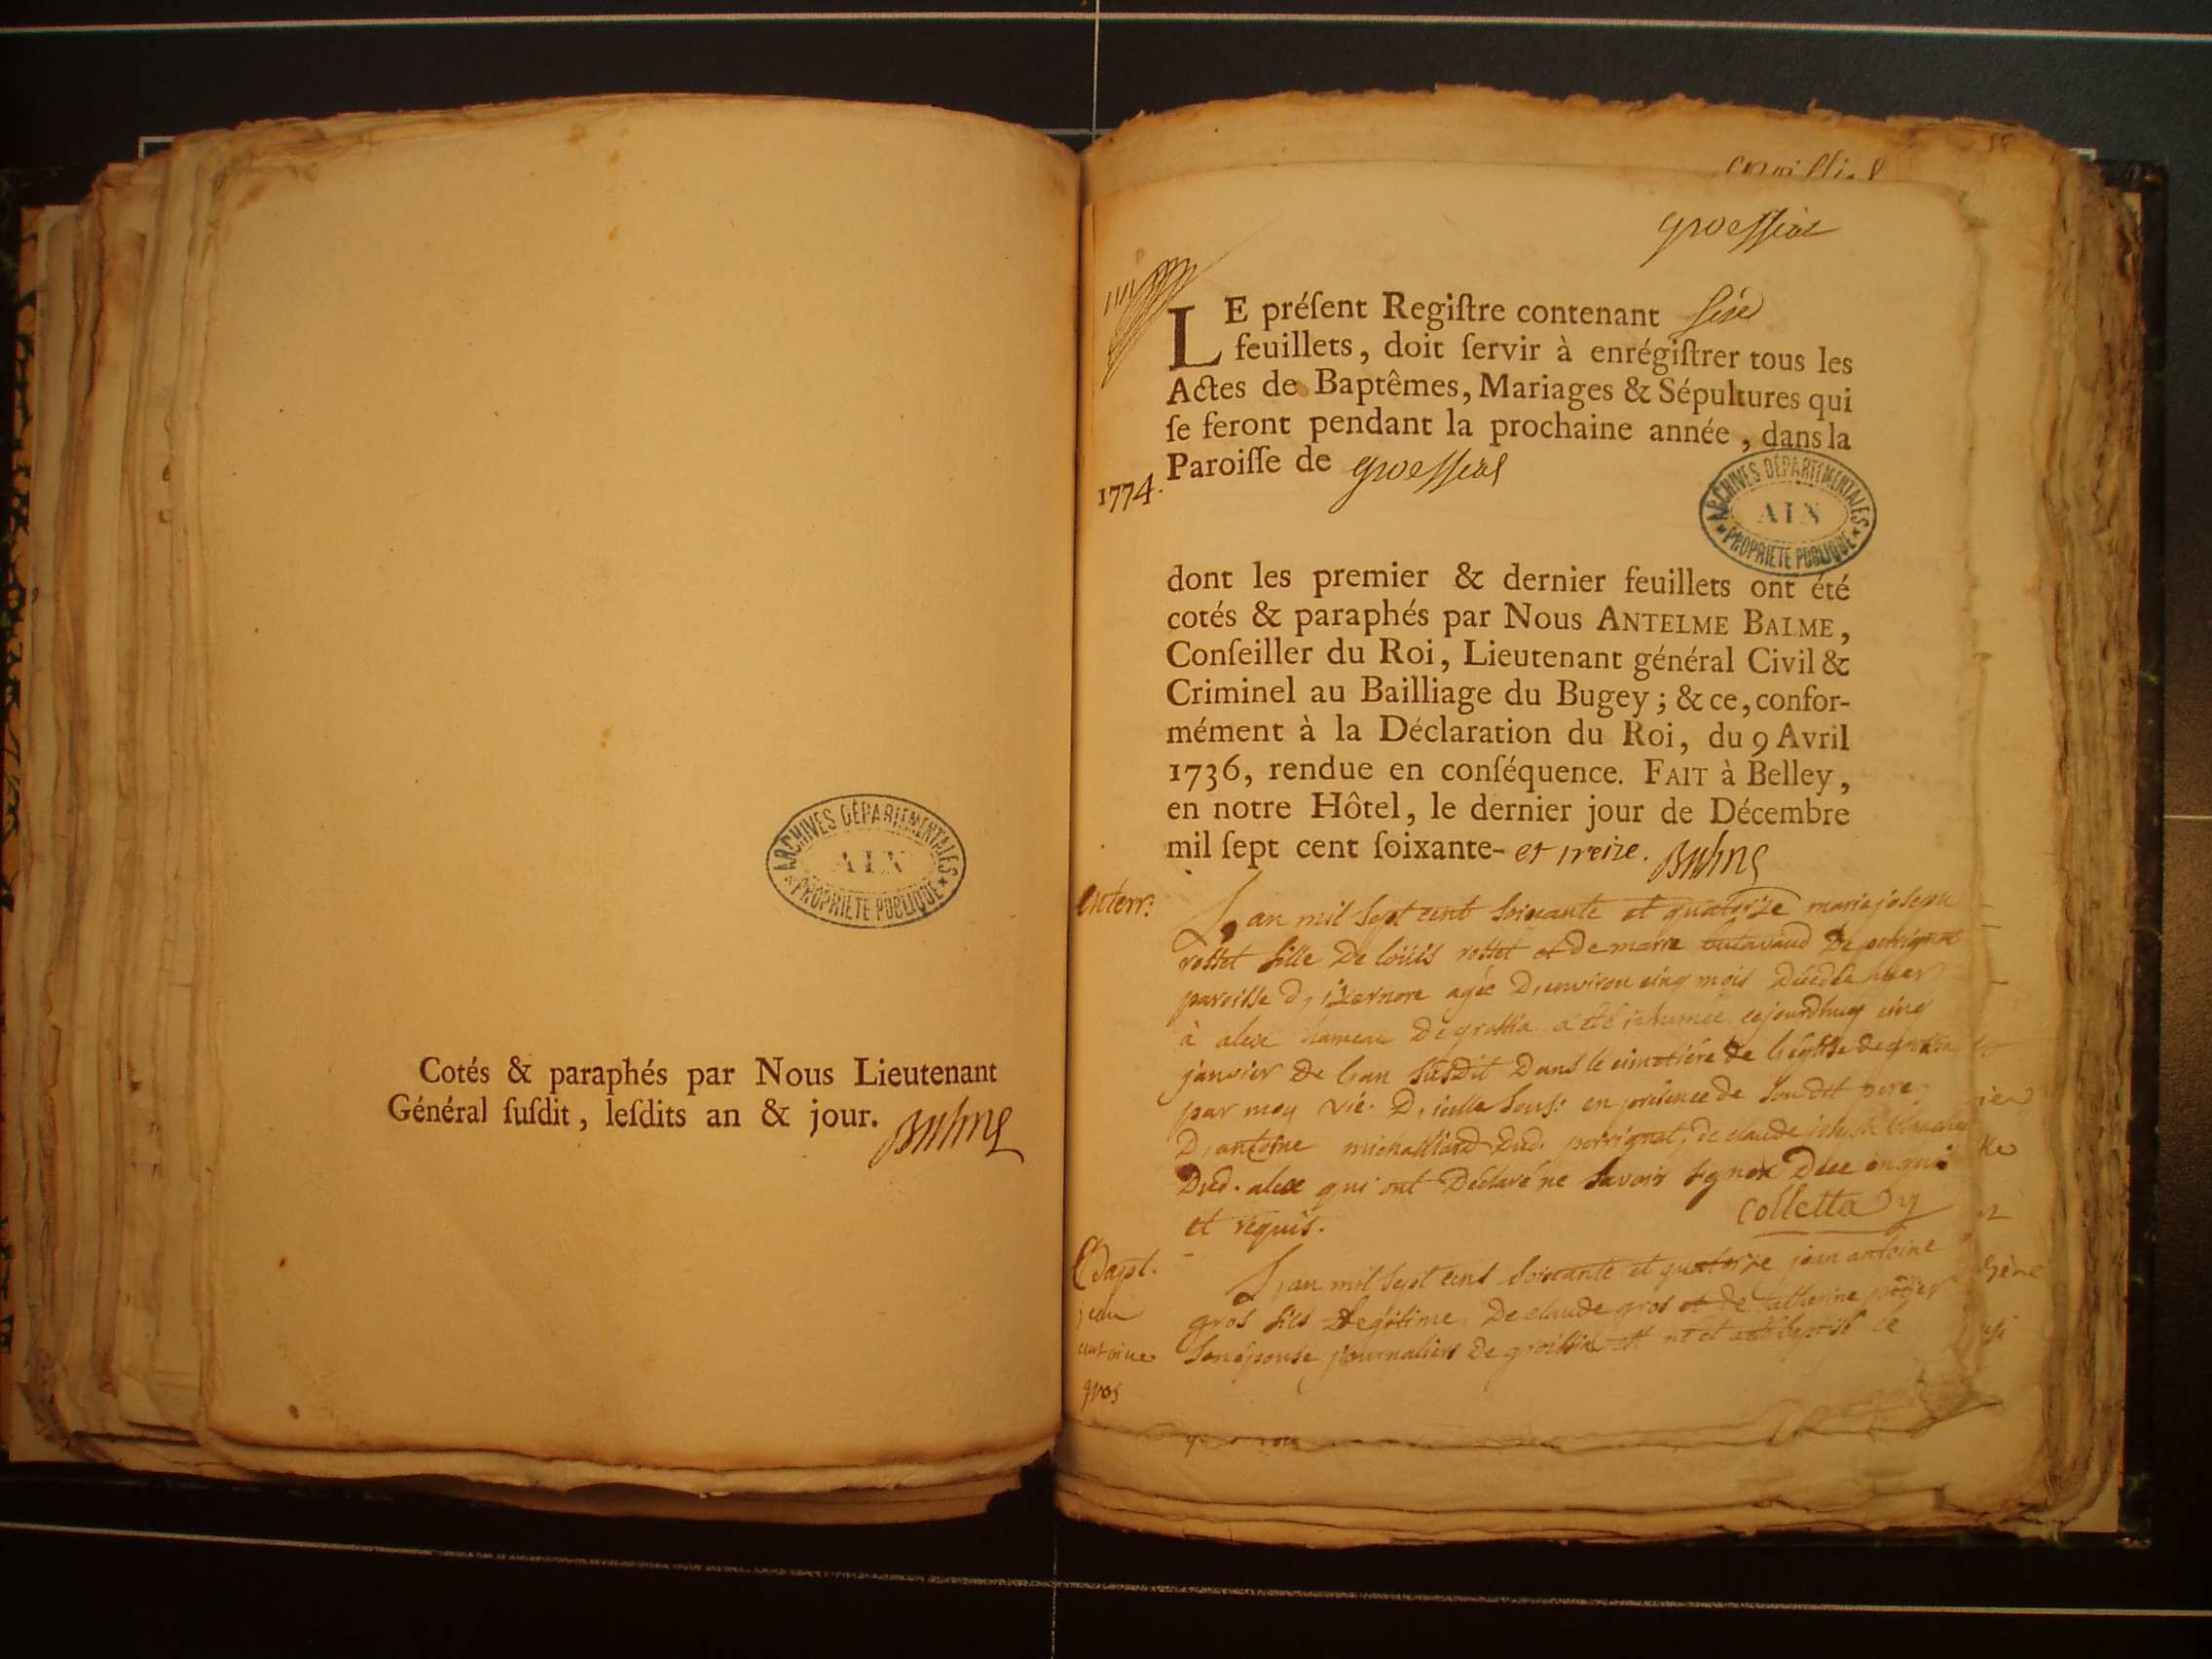 Cotés & paraphés par Nous Lieutenant
Général ſuſdit, leſdits an & jour.
ARCHIVES DÉPARTEMENTALES
AIN
PROPRIÉTÉ PUBLIQUE
groissiat
LE préſent Regiſtre contenant
feuillets, doit ſervir à enrégiſtrer tous les
Actes de Baptêmes, Mariages & Sépultures qui
ſe feront pendant la prochaine année, dans la
Paroiſſe de groissiat
1774.
ARCHIVES DÉPARTEMENTALES
AIN
PROPRIÉTÉ PUBLIQUE
dont les premier & dernier feuillets ont été
cotés & paraphés par Nous ANTELME BALME,
Conſeiller du Roi, Lieutenant général Civil &
Criminel au Bailliage du Bugey; & ce, confor-
mément à la Déclaration du Roi, du 9 Avril
1736, rendue en conſéquence. FAIT à Belley,
en notre Hôtel, le dernier jour de Décembre
mil ſept cent ſoixante- et treize.
enterr:
L'an mil sept cent soixante et quatorze marie joseph
rosset fille de loüis rosset et de marie butavaud de perrignat
paroisse d'izernore agée d'environ cinq mois décédée hier
à alex hameau de grossia a été inhumée cejourdhuy cinq
janvier de l'an susdit dans le cimetiére de l'église de
par moy vic. d'icelle sous: en présence de son dit pere,
d'antoine michalliard dud. perrignat, de claude joseph
dud. alex qui ont déclaré ne savoir signer dece enquis
et requis.
colletta
bapt.
jean
antoine
gros
L'an mil sept cent soixante et quatorze jean antoine
gros fils légitime de claude gros et de catherine
son épouse journaliers de groissia est né et a été baptisé le